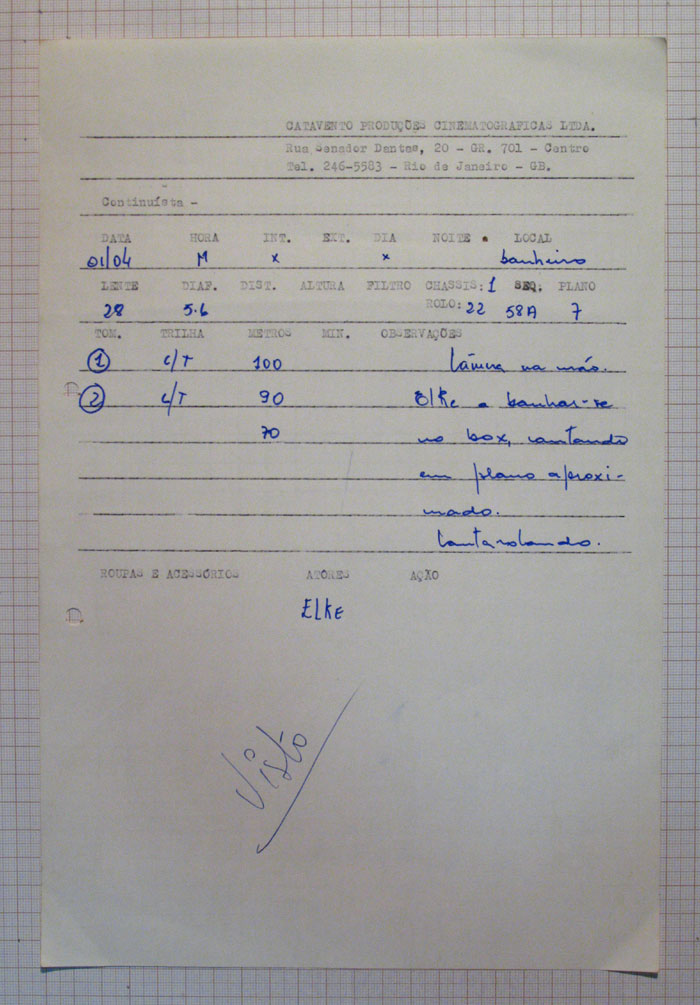 CATAVENTO PRODUÇÕES CINEMATOGRAFICAS LTDA.
Rua Senador Dantas, 20 - GR. 701 - Centro
Tel. 246-5583 - Rio de Janeiro - GB.
Continuísta -
DATA HORA INT. EXT. DIA NOITE LOCAL
01/04 M x x banheiro
LENTE DIAF. DIST. ALTURA FILTRO CHASSIS: 1 SEQ: PLANO
28 5.6 ROLO: 22 58A 7
TOM. TRILHA METROS MIN. OBSERVAÇÕES
1 C/T 100 na mão.
2 C/T 90 Elke a banhar-se
70 no box, cantando
em plano aproxi-
mado.
Cantarolando.
ROUPAS E ACESSÓRIOS ATORES AÇÃO
ELKE
Visto